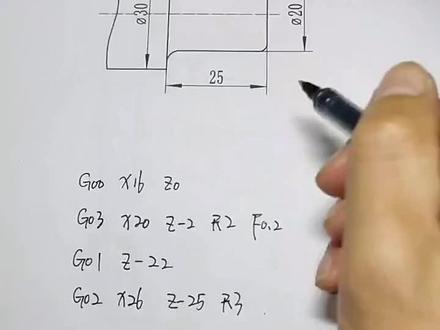 ø30
ø20
25
G00 X16 Z0
G03 X20 Z-2 R2 F0.2
G01 Z-22
G02 X26 Z-25 R3